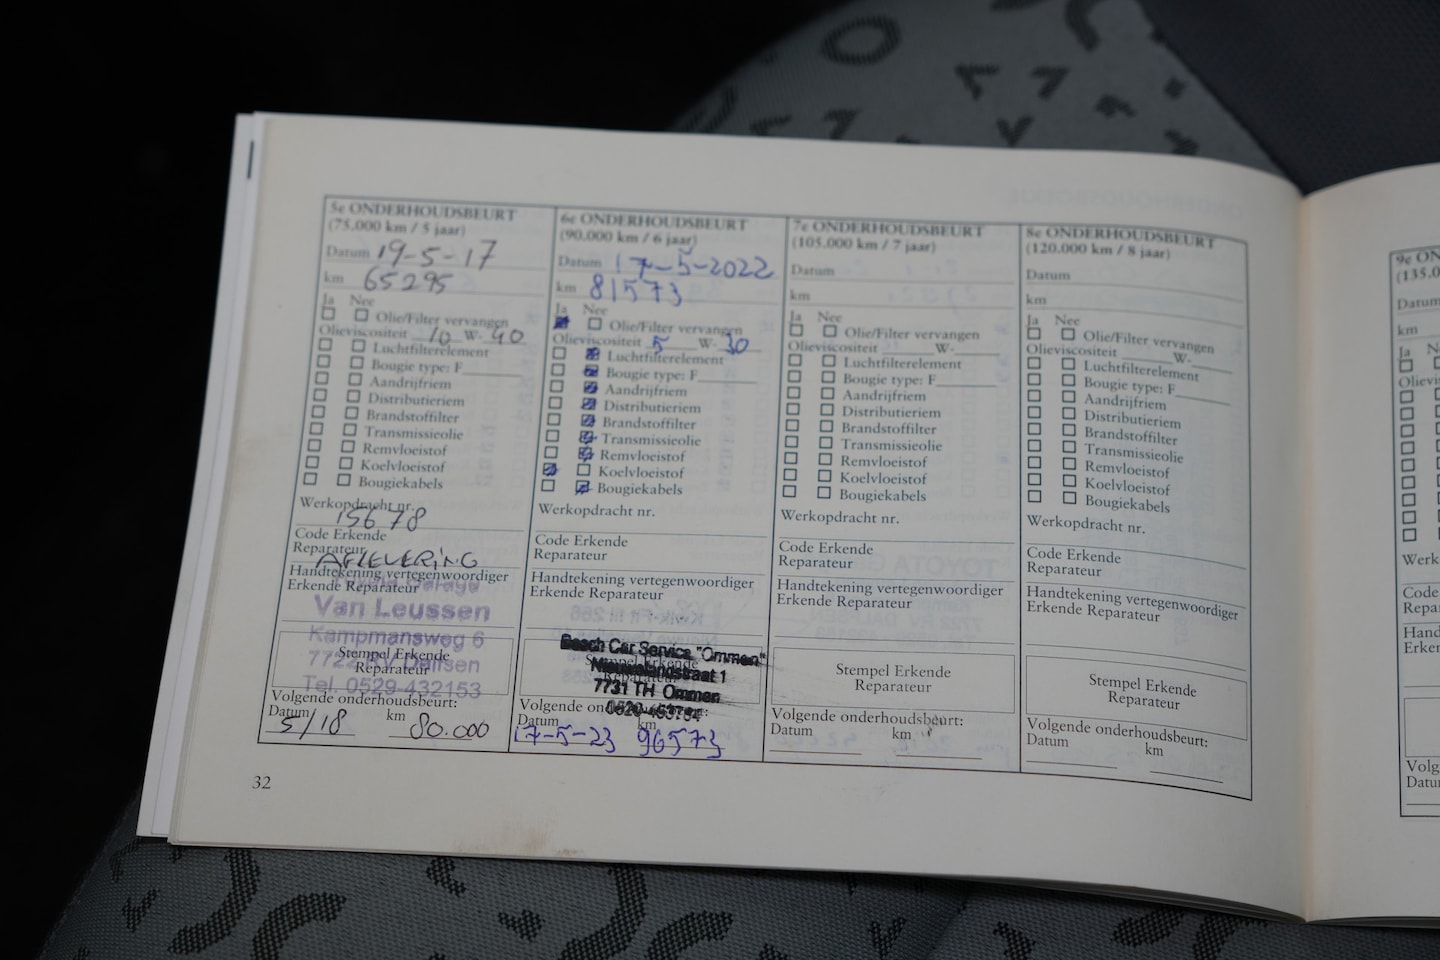 5e ONDERHOUDSBEURT
(75.000 km / 5 jaar)
Datum 19-5-17
km 65295
Ja Nee
Olie/Filter vervangen
Olieviscositeit 10 W- 40
Luchtfilterelement
Bougie type: F
Aandrijfriem
Distributieriem
Brandstoffilter
Transmissieolie
Remvloeistof
Koelvloeistof
Bougiekabels
Werkopdracht nr.
15678
Code Erkende
Reparateur
AFLEVERING
Handtekening vertegenwoordiger
Erkende Reparateur
Van Leussen
Kampmansweg 6
Stempel Erkende
7722 RV Dalfsen
Reparateur
Tel. 0529-432153
Volgende onderhoudsbeurt:
Datum km
5/18 80.000
6e ONDERHOUDSBEURT
(90.000 km / 6 jaar)
Datum 17-5-2022
km 81573
Ja Nee
Olie/Filter vervangen
Olieviscositeit 5 W- 30
Luchtfilterelement
Bougie type: F
Aandrijfriem
Distributieriem
Brandstoffilter
Transmissieolie
Remvloeistof
Koelvloeistof
Bougiekabels
Werkopdracht nr.
Code Erkende
Reparateur
Handtekening vertegenwoordiger
Erkende Reparateur
Bosch Car Service "Ommen"
Stempel Erkende
Nieuwlandstraat 1
Reparateur
7731 TH Ommen
Volgende onderhoudsbeurt:
Datum km
17-5-23 96573
7e ONDERHOUDSBEURT
(105.000 km / 7 jaar)
Datum
km
Ja Nee
Olie/Filter vervangen
Olieviscositeit W-
Luchtfilterelement
Bougie type: F
Aandrijfriem
Distributieriem
Brandstoffilter
Transmissieolie
Remvloeistof
Koelvloeistof
Bougiekabels
Werkopdracht nr.
Code Erkende
Reparateur
Handtekening vertegenwoordiger
Erkende Reparateur
Stempel Erkende
Reparateur
Volgende onderhoudsbeurt:
Datum km
8e ONDERHOUDSBEURT
(120.000 km / 8 jaar)
Datum
km
Ja Nee
Olie/Filter vervangen
Olieviscositeit W-
Luchtfilterelement
Bougie type: F
Aandrijfriem
Distributieriem
Brandstoffilter
Transmissieolie
Remvloeistof
Koelvloeistof
Bougiekabels
Werkopdracht nr.
Code Erkende
Reparateur
Handtekening vertegenwoordiger
Erkende Reparateur
Stempel Erkende
Reparateur
Volgende onderhoudsbeurt:
Datum km
32
9e
Datum
km
Ja
Code